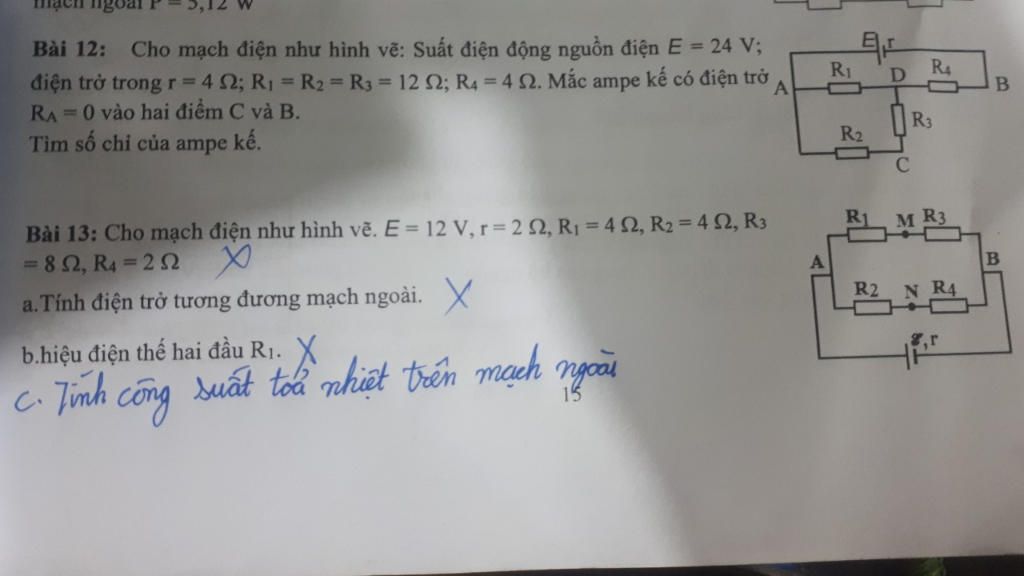 mạch ngoài P = 5,12 W
Bài 12: Cho mạch điện như hình vẽ: Suất điện động nguồn điện E = 24 V;
điện trở trong r = 4 Ω; R1 = R2 = R3 = 12 Ω; R4 = 4 Ω. Mắc ampe kế có điện trở
RA = 0 vào hai điểm C và B.
Tìm số chỉ của ampe kế.
E r
R1 D R4
A B
R3
R2
C
Bài 13: Cho mạch điện như hình vẽ. E = 12 V, r = 2 Ω, R1 = 4 Ω, R2 = 4 Ω, R3
= 8 Ω, R4 = 2 Ω
a.Tính điện trở tương đương mạch ngoài.
b.hiệu điện thế hai đầu R1.
c. Tính công suất toả nhiệt trên mạch ngoài
R1 M R3
A B
R2 N R4
ℰ,r
15